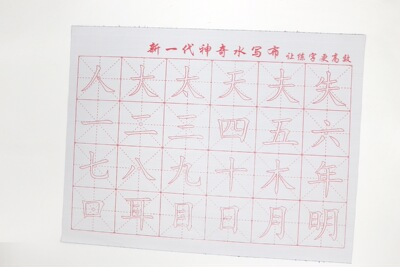 新一代神奇水写布 让练字更高效
人大太天夫失
一二三四五六
七八九十木年
口耳目日月明